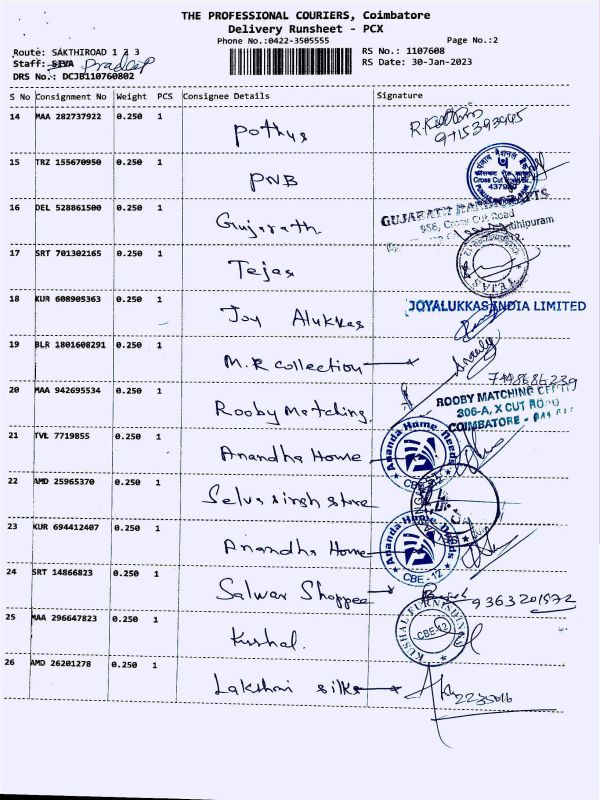 THE PROFESSIONAL COURIERS, Coimbatore
Delivery Runsheet - PCX
Phone No.:0422-3505555 Page No.:2
Route: SAKTHIROAD 1 2 3 RS No.: 1107608
Staff: SIVA Pradeep RS Date: 30-Jan-2023
DRS No.: DCJB110760802
S No Consignment No Weight PCS Consignee Details Signature
14 MAA 282737922 0.250 1 Pothys 9715393945
15 TRZ 155670950 0.250 1 PNB Cross Cut Road Br.
16 DEL 528861500 0.250 1 Gujarath GUJARATH
956, Cross Cut Road
17 SRT 701302165 0.250 1 Tejas TEJAS
18 KUR 608905363 0.250 1 Joy Alukkas JOYALUKKAS INDIA LIMITED
19 BLR 1801608291 0.250 1 M.R collection
20 MAA 942695534 0.250 1 Rooby Matching ROOBY MATCHING
306-A, X CUT ROAD
COIMBATORE -
21 TVL 7719855 0.250 1 Anandha Home Ananda Home Needs CBE-12
22 AMD 25965370 0.250 1 Selvasingh store
23 KUR 694412407 0.250 1 Anandha Home Ananda Home Needs CBE-12
24 SRT 14866823 0.250 1 Salwar Shoppee 9363201572
25 MAA 296647823 0.250 1 Kushal. KUSHAL FURNISHING CBE-12
26 AMD 26201278 0.250 1 Lakshmi silks 2235016